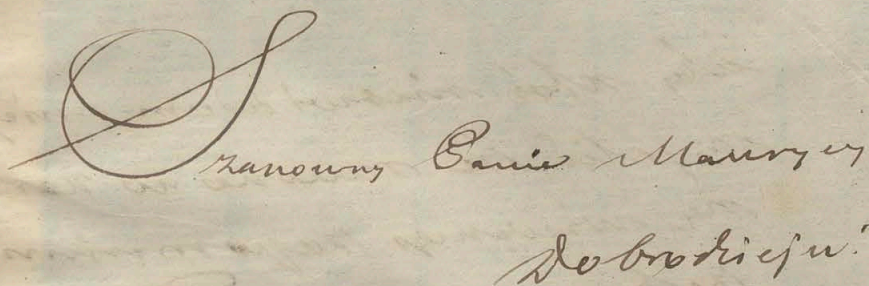 Szanowny Panie Maurycy
Dobrodzieju!